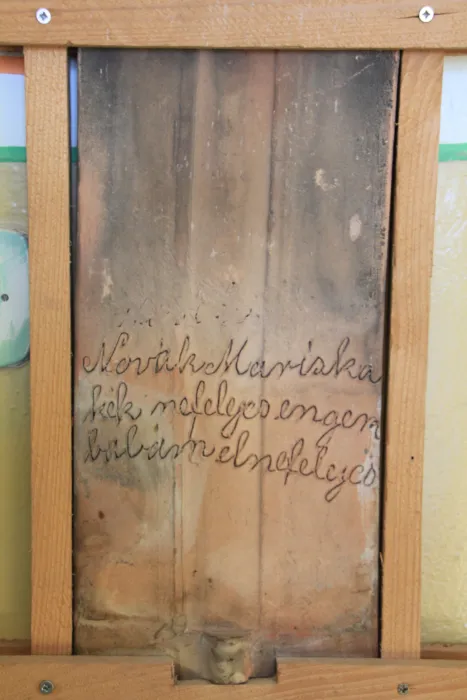 Novák Mariska
kék nefelejcs engem
babám el nefelejcs